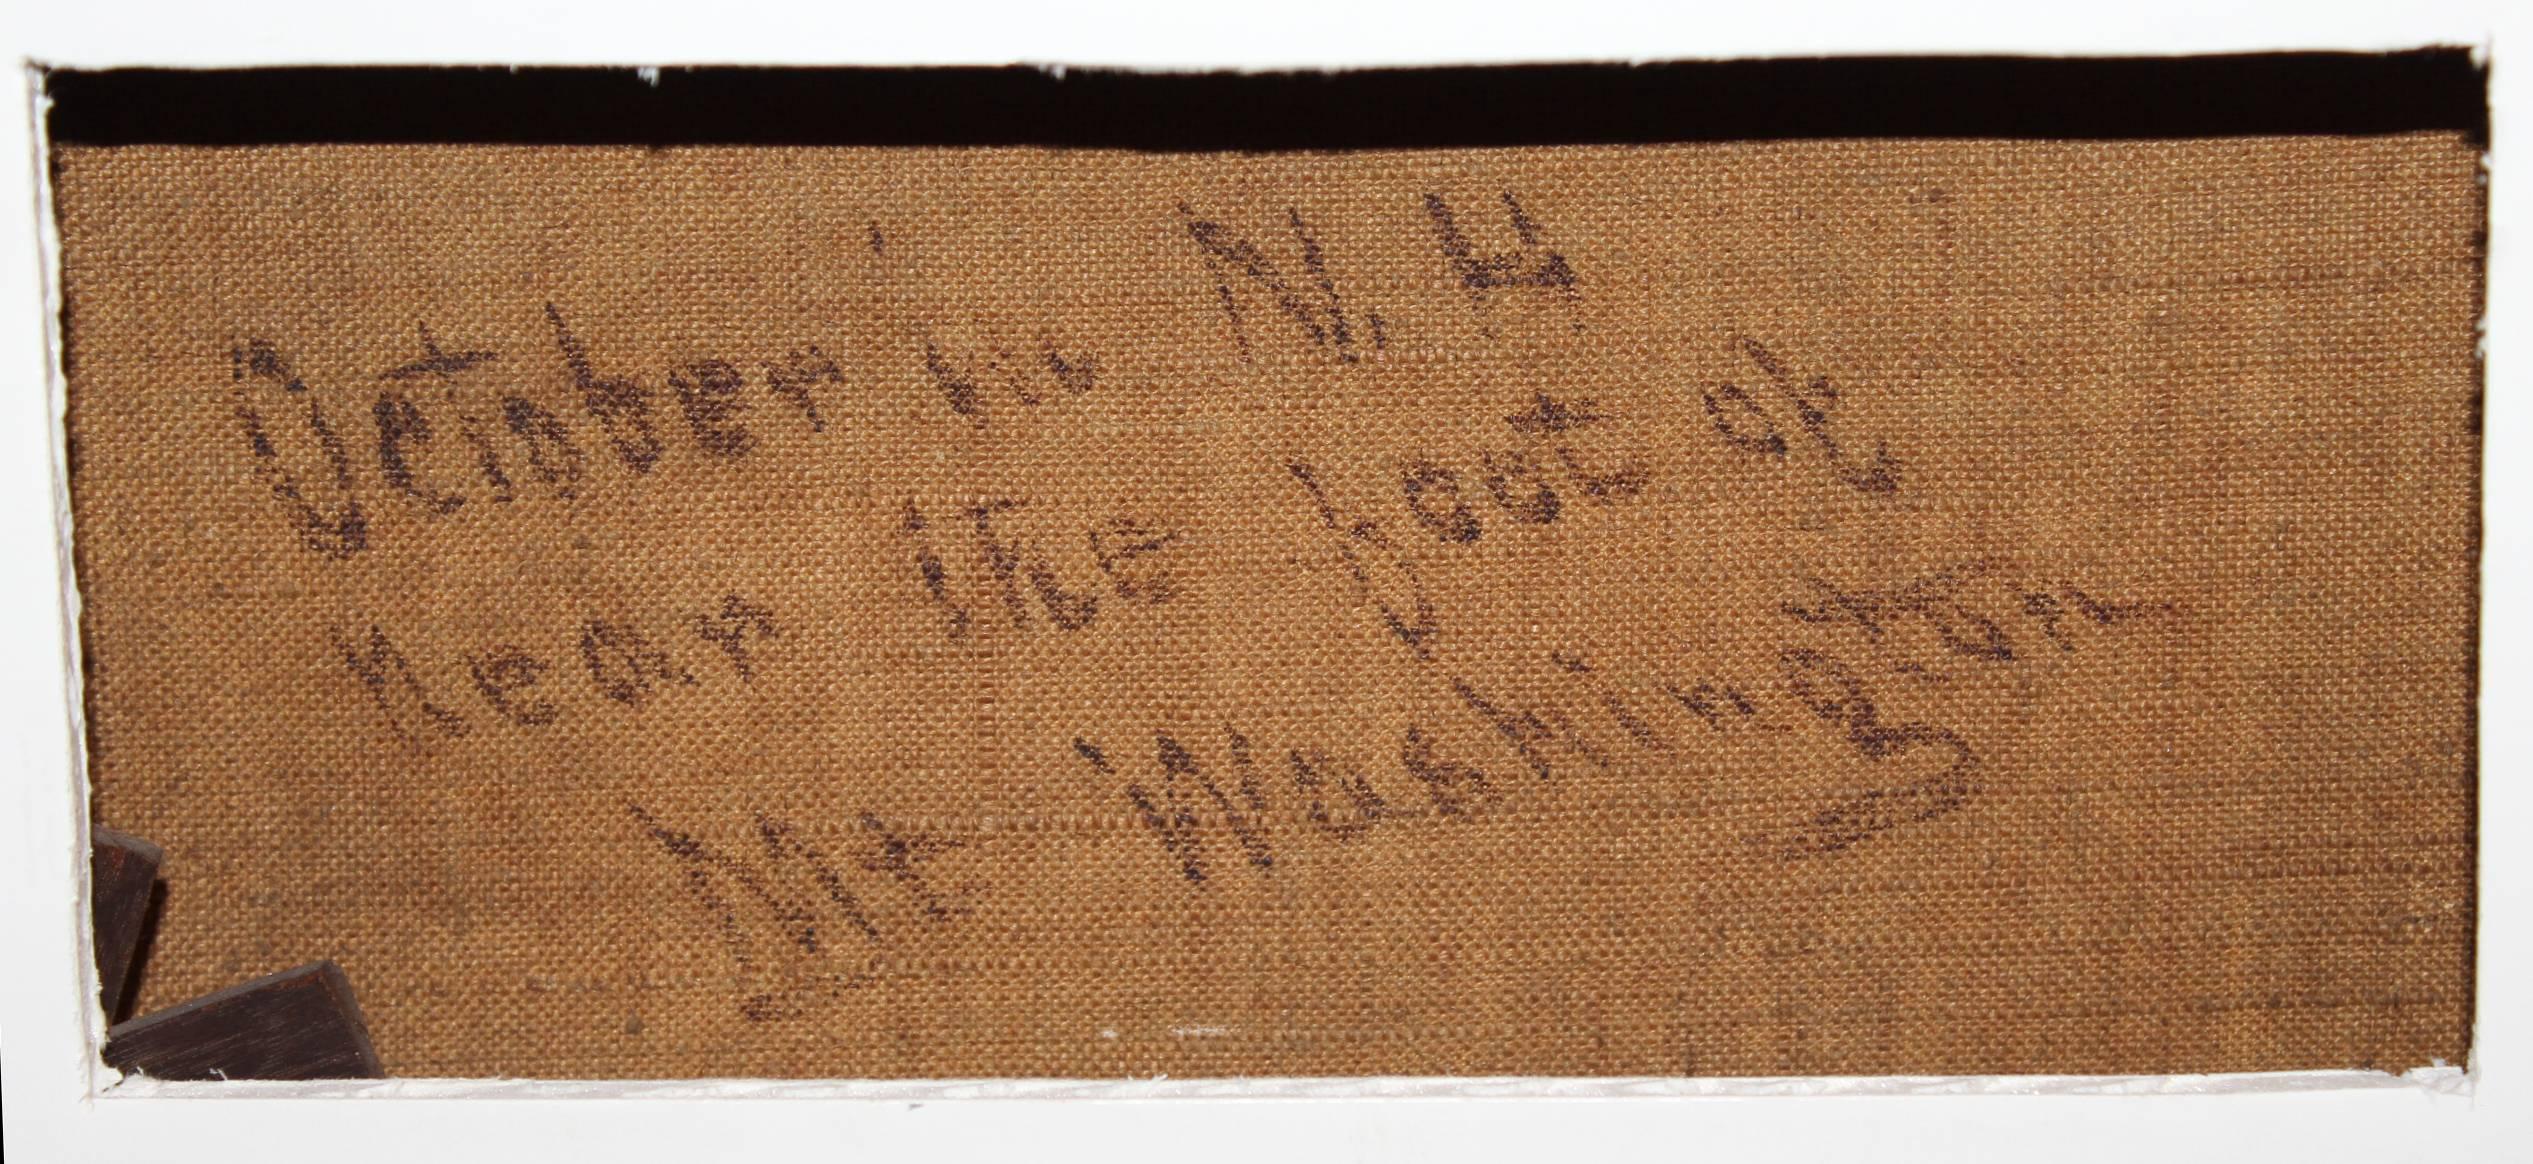 October in N. H
near the foot of
Mt Washington